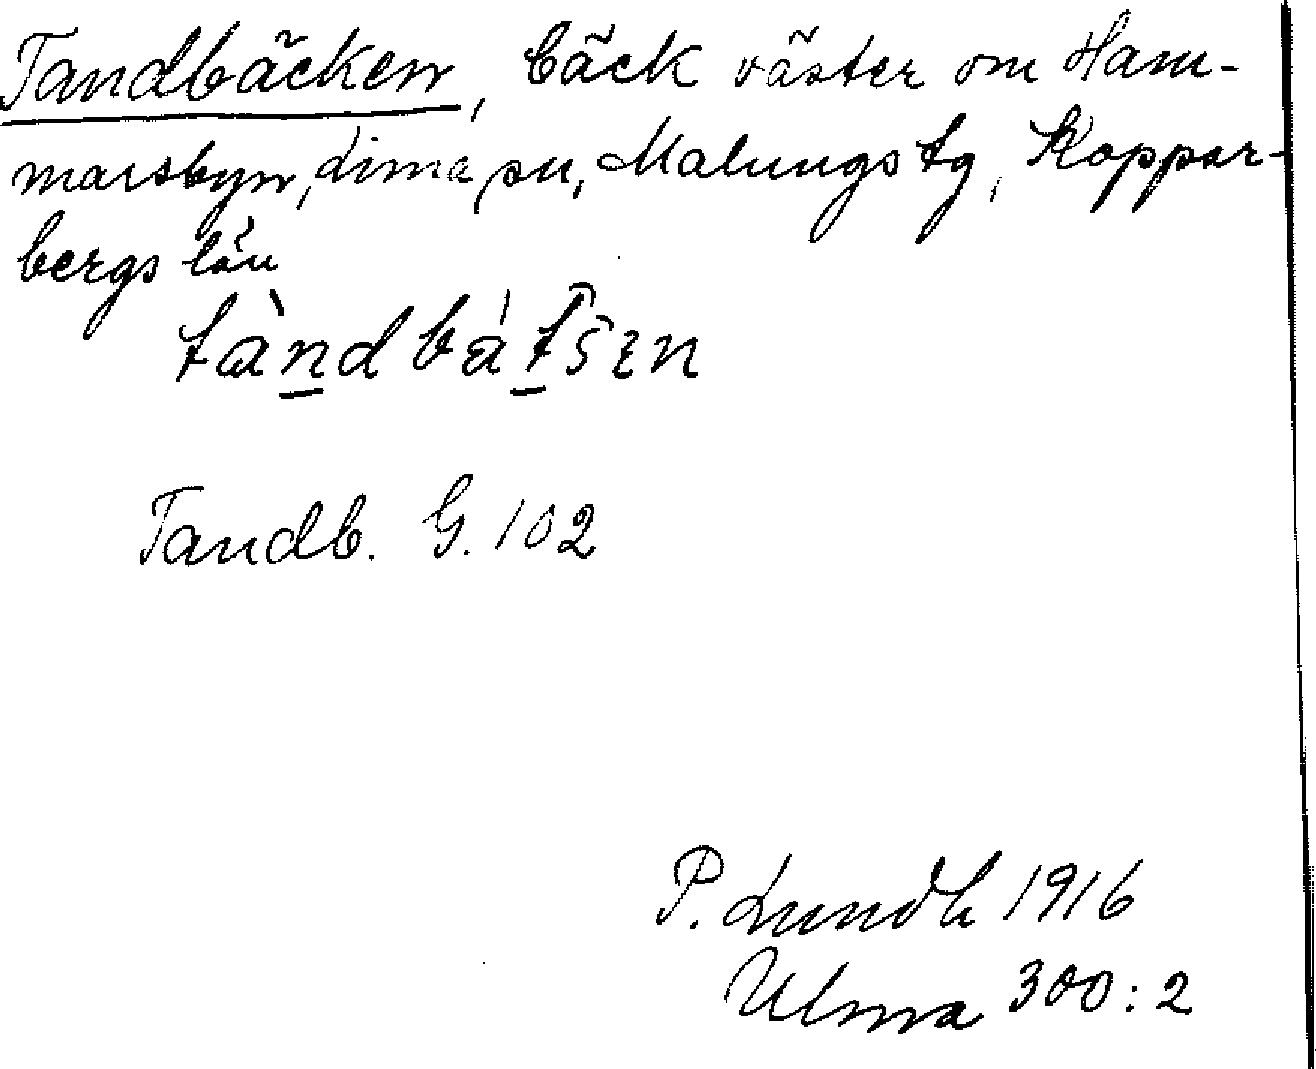 Tandbäcken, bäck väster om Ham-
marsbyn, Lima sn, Malungs tg, Koppar-
bergs län
tàndbátšɛn
Tandb. G. 102
P. Lundh 1916
Ulma 300:2